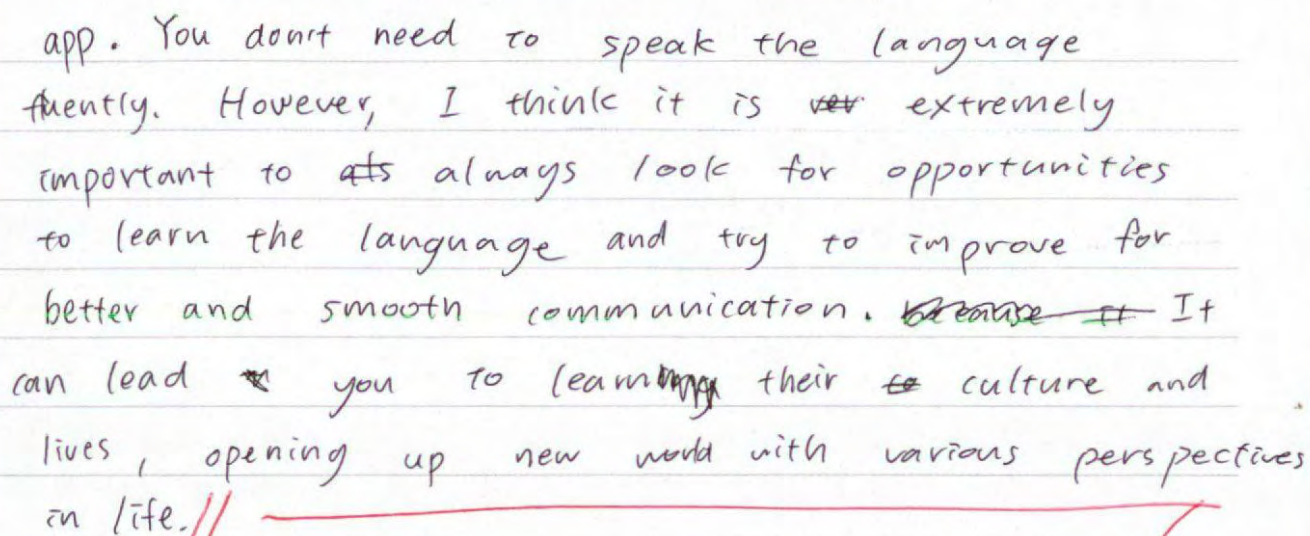 app. You don't need to speak the language
fluently. However, I think it is extremely
important to always look for opportunities
to learn the language and try to improve for
better and smooth communication. because it It
can lead you to learn their culture and
lives, opening up new world with various perspectives
in life.//